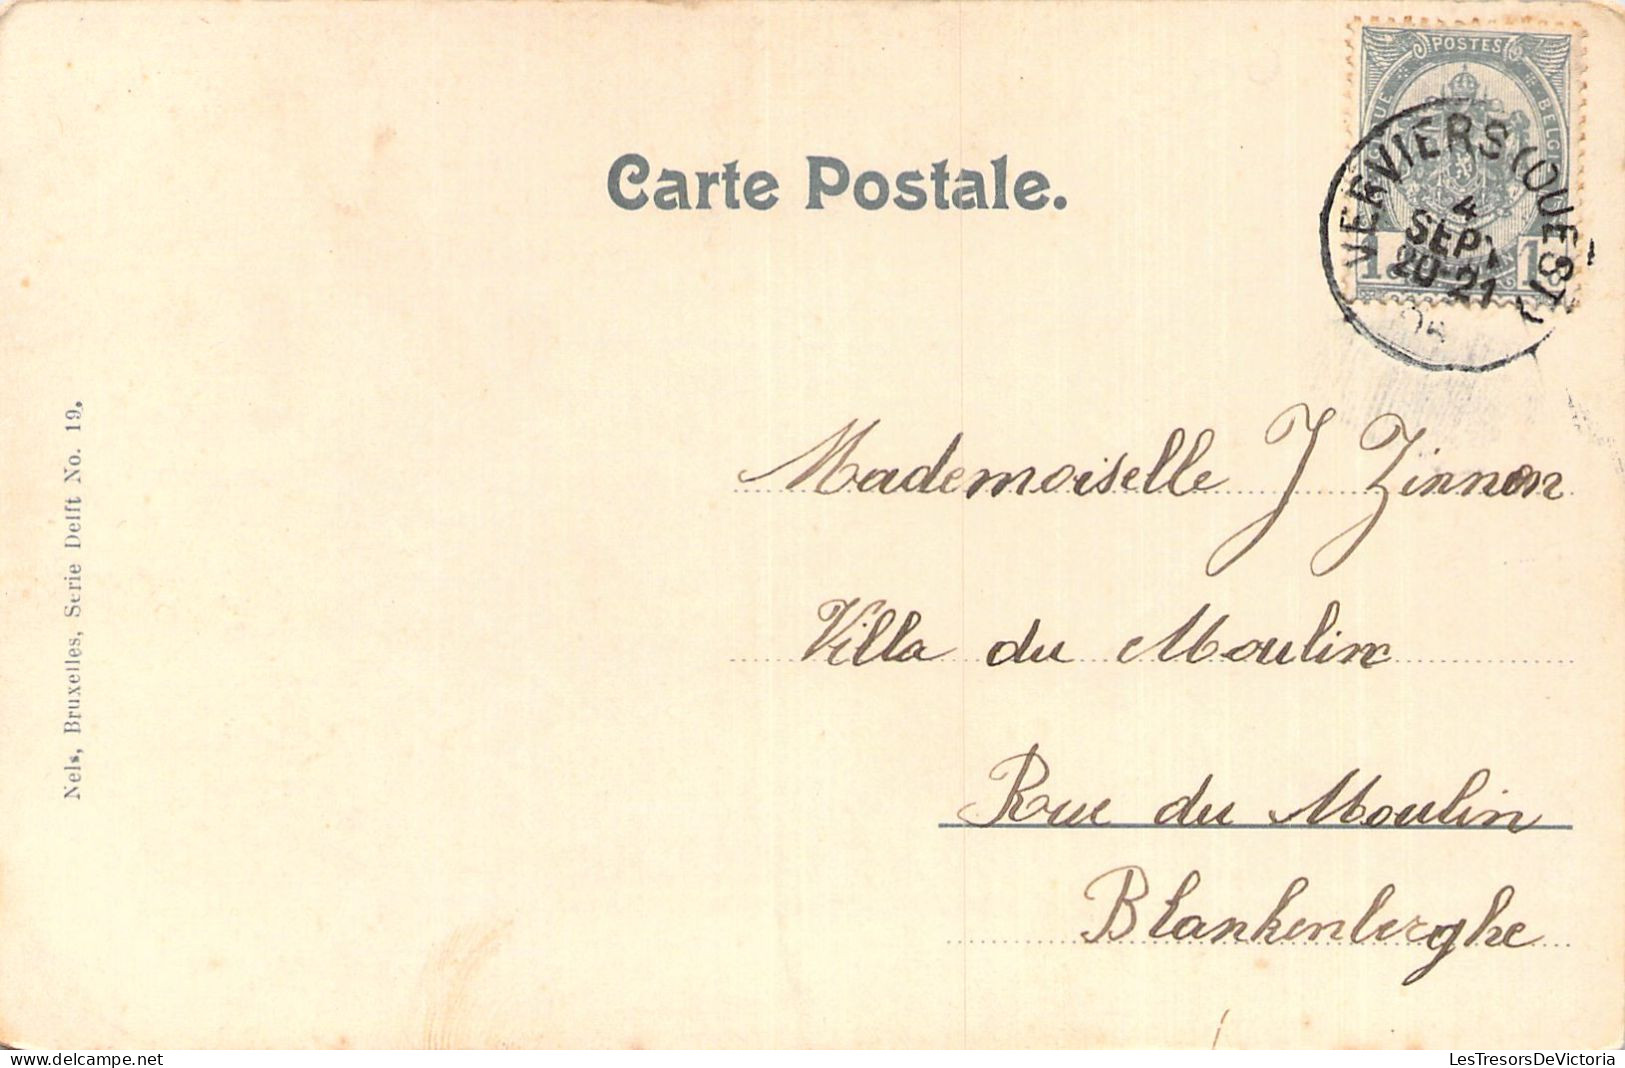 POSTES
BELGI
1 1
VERVIERS (OUEST)
4
SEPT
20-21
04
Carte Postale.
Nels, Bruxelles, Serie Delft No. 19.
Mademoiselle J Zinnen
Villa du Moulin
Rue du Moulin
Blankenberghe
LesTresorsDeVictoria